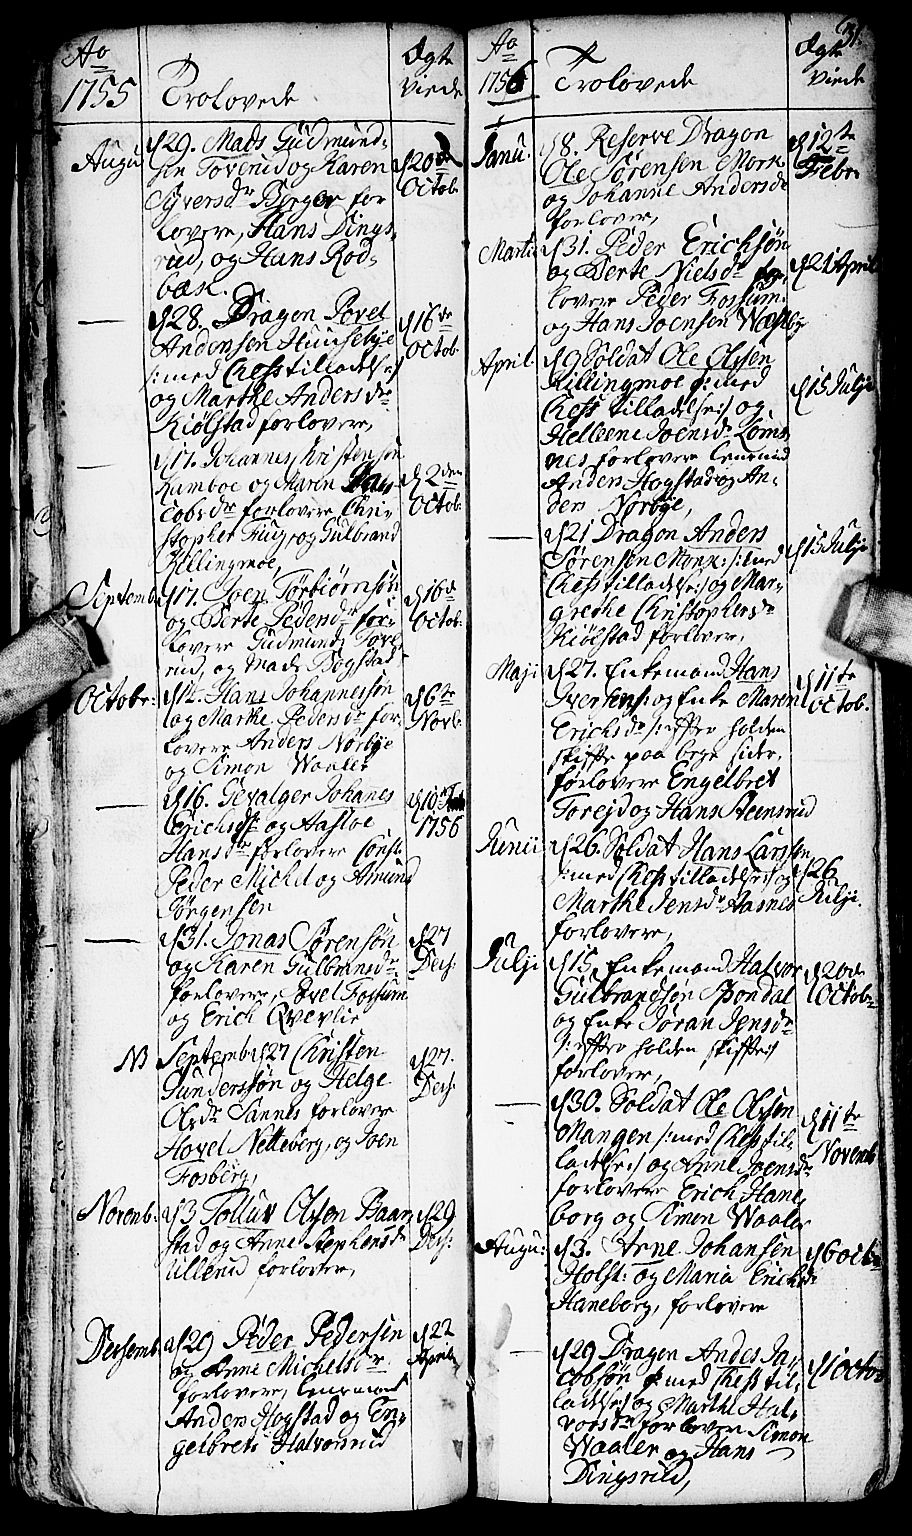 Ao
1755
Trolovede
Ægte
Viede
Augu
d 29. Mads Gudmund-
sen Toverud og Karen
Syversdr Berger for
lovere, Hans Dings-
rud, og Hans Rod-
bæk.
d 20de
Octob.
d 28. Dragon Povel
Andersen Huusebye
/:med Chefs tilladelse:/
og Marthe Andersdr
Kiølstad forlovere,
d 16de
Octob.
d 17. Johannes Christensøn
Kamboe og Maren Ja-
cobsdr forlovere Chri-
stopher Fug, og Gulbrand
Killingmoe,
d 2den
Octob.
Septemb.
d 17. Joen Torbiørnsøn
og Berte Pedersdr for-
lovere Gudmund Tove-
rud, og Mads Bogstad
d 16de
Octob.
Octobr.
d 12. Hans Johannessøn
og Marthe Pedersdr for-
lovere Anders Nørbye
og Simon Waaler
d 6te
Novb.
d 16. Gevalger Johanes
Erichsen og Aasloe
Hansdr forlovere Const:
Peder Michel og Amund
Jørgensen
d 10
1756
d 31. Jonas Sørensøn
og Karen Gulbrandsdr
forlovere, Povel Fossum
og Erich Qvevlie
d 27
Decs:
NB
Septemb: d 27 Christen
Gunderssøn og Helge
Olsdr Sannes forlovere
Hovel Netteberg, og Joen
Fosberg,
d 27.
Decs:
Novemb.
d 3 Tolluv Olssen Baar-
stad og Anne Stephensdr
Ullerud forlovere,
d 29
Decs:
Decsemb.
d 29 Peder Pedersen
og Anne Michelsdr
forlovere, Lensmand
Anders Hogstad og En-
gelbret Halvorsrud
d 22
Aprilis
31.
Ao
1756
Trolovede
Ægte
Viede
Janu.
d 8. Reserve Dragon
Ole Sørensen Mork
og Johanne Andersdr
forlovere,
d 12te
Febr.
Martii
d 31. Peder Erichsøn
og Berte Nielsdr for-
lovere Peder Fossum
og Hans Joensen
d 21 April
April.
d 9 Soldat Ole Olssen
Killingmoe /:med
Chefs tilladelse:/ og
Helleene Joensdr Loms-
nes forlovere Lensmand
Anders Hogstad og An-
ders Nørbye,
d 15 Julji
d 21 Dragon Anders
Sørensen Monx: /:med
Chefs tilladelse:/ og Mar-
grethe Christophersdr
Kiølstad forlovere,
d 15 Julji
Maji
d 27. Enkemand Hans
Iversens: og Enke Maren
Erichsdr /:efter holden
skifte paa bege sider,
forlovere Engelbret
Toreid og Hans Steensrud
d 11te
Octob.
Junii
d 26. Soldat Hans Larssen
/:med Chefs tilladelse:/ og
Marthe Jensdr Aasnes
forlovere,
d 26
Julji.
Julji
d 15. Enkemand Halvor
Gulbrandsøn Spondal
og Enke Jøran Jensdr
/:efter holden skifte:/
forlovere,
d 20de
Octobr
d 30. Soldat Ole Olssen
Mangen /:med Chefs til-
ladelse:/ og Anne Joensdr
forlovere Erich Hane-
borg og Simon Waaler
d 11te
Novemb
Augu:
d 3. Arne Johansen
Holst: og Maria Erichsdr
Haneborg, forlovere
d 6 octbr
d 29 Dragon Andes Ja-
cobsøn /:med Chefs til-
ladelse:/ og Marthe Hal-
vorsdr forlovere Simon
Waaler og Hans
Dingsrud,
d 1 octo